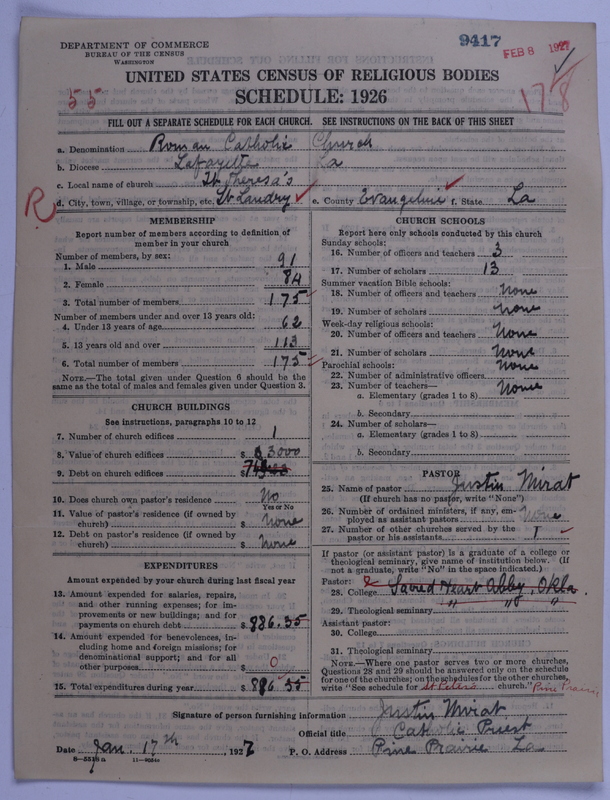 DEPARTMENT OF COMMERCE
BUREAU OF THE CENSUS
WASHINGTON
9417
FEB 8 1927
UNITED STATES CENSUS OF RELIGIOUS BODIES
SCHEDULE: 1926
55
17-8
FILL OUT A SEPARATE SCHEDULE FOR EACH CHURCH. SEE INSTRUCTIONS ON THE BACK OF THIS SHEET
a. Denomination Roman Catholic Church
b. Diocese Lafayette La
c. Local name of church St Theresa's
R
d. City, town, village, or township, etc. St Landry e. County Evangeline f. State La
MEMBERSHIP
Report number of members according to definition of member in your church
Number of members, by sex:
1. Male 91
2. Female 84
3. Total number of members 175
Number of members under and over 13 years old:
4. Under 13 years of age 62
5. 13 years old and over 113
6. Total number of members 175
NOTE.—The total given under Question 6 should be the same as the total of males and females given under Question 3.
CHURCH BUILDINGS
See instructions, paragraphs 10 to 12
7. Number of church edifices 1
8. Value of church edifices $ 3000
9. Debt on church edifices $
10. Does church own pastor's residence No
Yes or No
11. Value of pastor's residence (if owned by church) $ None
12. Debt on pastor's residence (if owned by church) $ None
EXPENDITURES
Amount expended by your church during last fiscal year
13. Amount expended for salaries, repairs, and other running expenses; for improvements or new buildings; and for payments on church debt $ 886.35
14. Amount expended for benevolences, including home and foreign missions; for denominational support; and for all other purposes $ 0
15. Total expenditures during year $ 886 35
CHURCH SCHOOLS
Report here only schools conducted by this church
Sunday schools:
16. Number of officers and teachers 3
17. Number of scholars 13
Summer vacation Bible schools:
18. Number of officers and teachers None
19. Number of scholars None
Week-day religious schools:
20. Number of officers and teachers None
21. Number of scholars None
Parochial schools: None
22. Number of administrative officers
23. Number of teachers—
a. Elementary (grades 1 to 8) None
b. Secondary
24. Number of scholars—
a. Elementary (grades 1 to 8)
b. Secondary
PASTOR
25. Name of pastor Justin Mirat
(If church has no pastor, write "None")
26. Number of ordained ministers, if any, employed as assistant pastors None
27. Number of other churches served by the pastor or his assistants 1
If pastor (or assistant pastor) is a graduate of a college or theological seminary, give name of institution below. (If not a graduate, write "No" in the space indicated.)
Pastor:
28. College Sacred Heart Abby, Okla.
29. Theological seminary " " "
Assistant pastor:
30. College
31. Theological seminary
NOTE.—Where one pastor serves two or more churches, Questions 28 and 29 should be answered only on the schedule for one of the churches; on the schedules for the other churches, write "See schedule for St Peters church." Pine Prairie
Signature of person furnishing information Justin Mirat
Official title Catholic Priest
Date Jan. 17th, 1927 P. O. Address Pine Prairie La
8—5518a 11—9234a